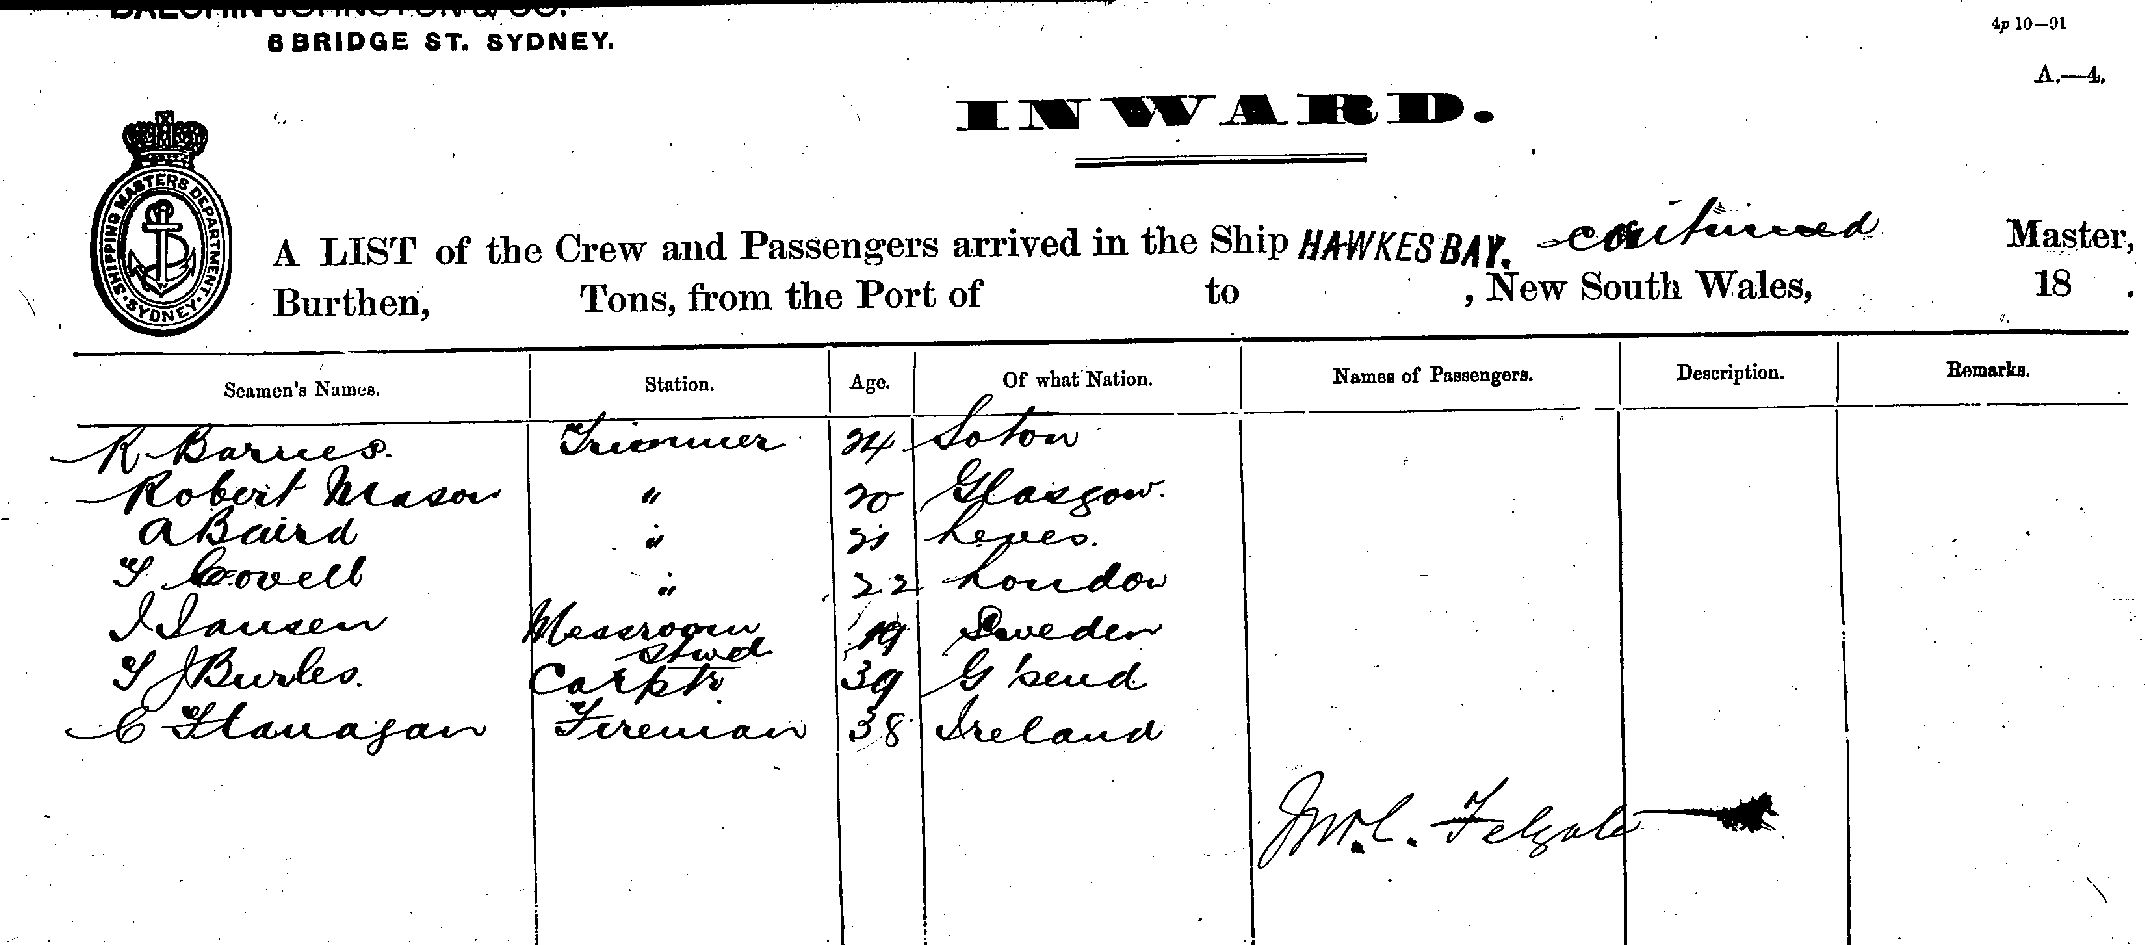 BALCHIN JOHNSTON & CO.
6 BRIDGE ST. SYDNEY.
4p 10—91
A.—4.
INWARD.
SHIPPING MASTERS DEPARTMENT. SYDNEY.
A LIST of the Crew and Passengers arrived in the Ship HAWKES BAY. continued Master,
Burthen, Tons, from the Port of to , New South Wales, 18 .
Seamen's Names. Station. Age. Of what Nation. Names of Passengers. Description. Remarks.
R Barnes. Trimmer 24 Soton
Robert Mason " 20 Glasgow.
A Baird " 21 Leves.
T Covell " 22 London
J Jansen Messroom 19 Sweden
stwd
T J Burles. Carptr. 39 G'send
C Flanagan Fireman 38 Ireland
Jno. C. Felgate